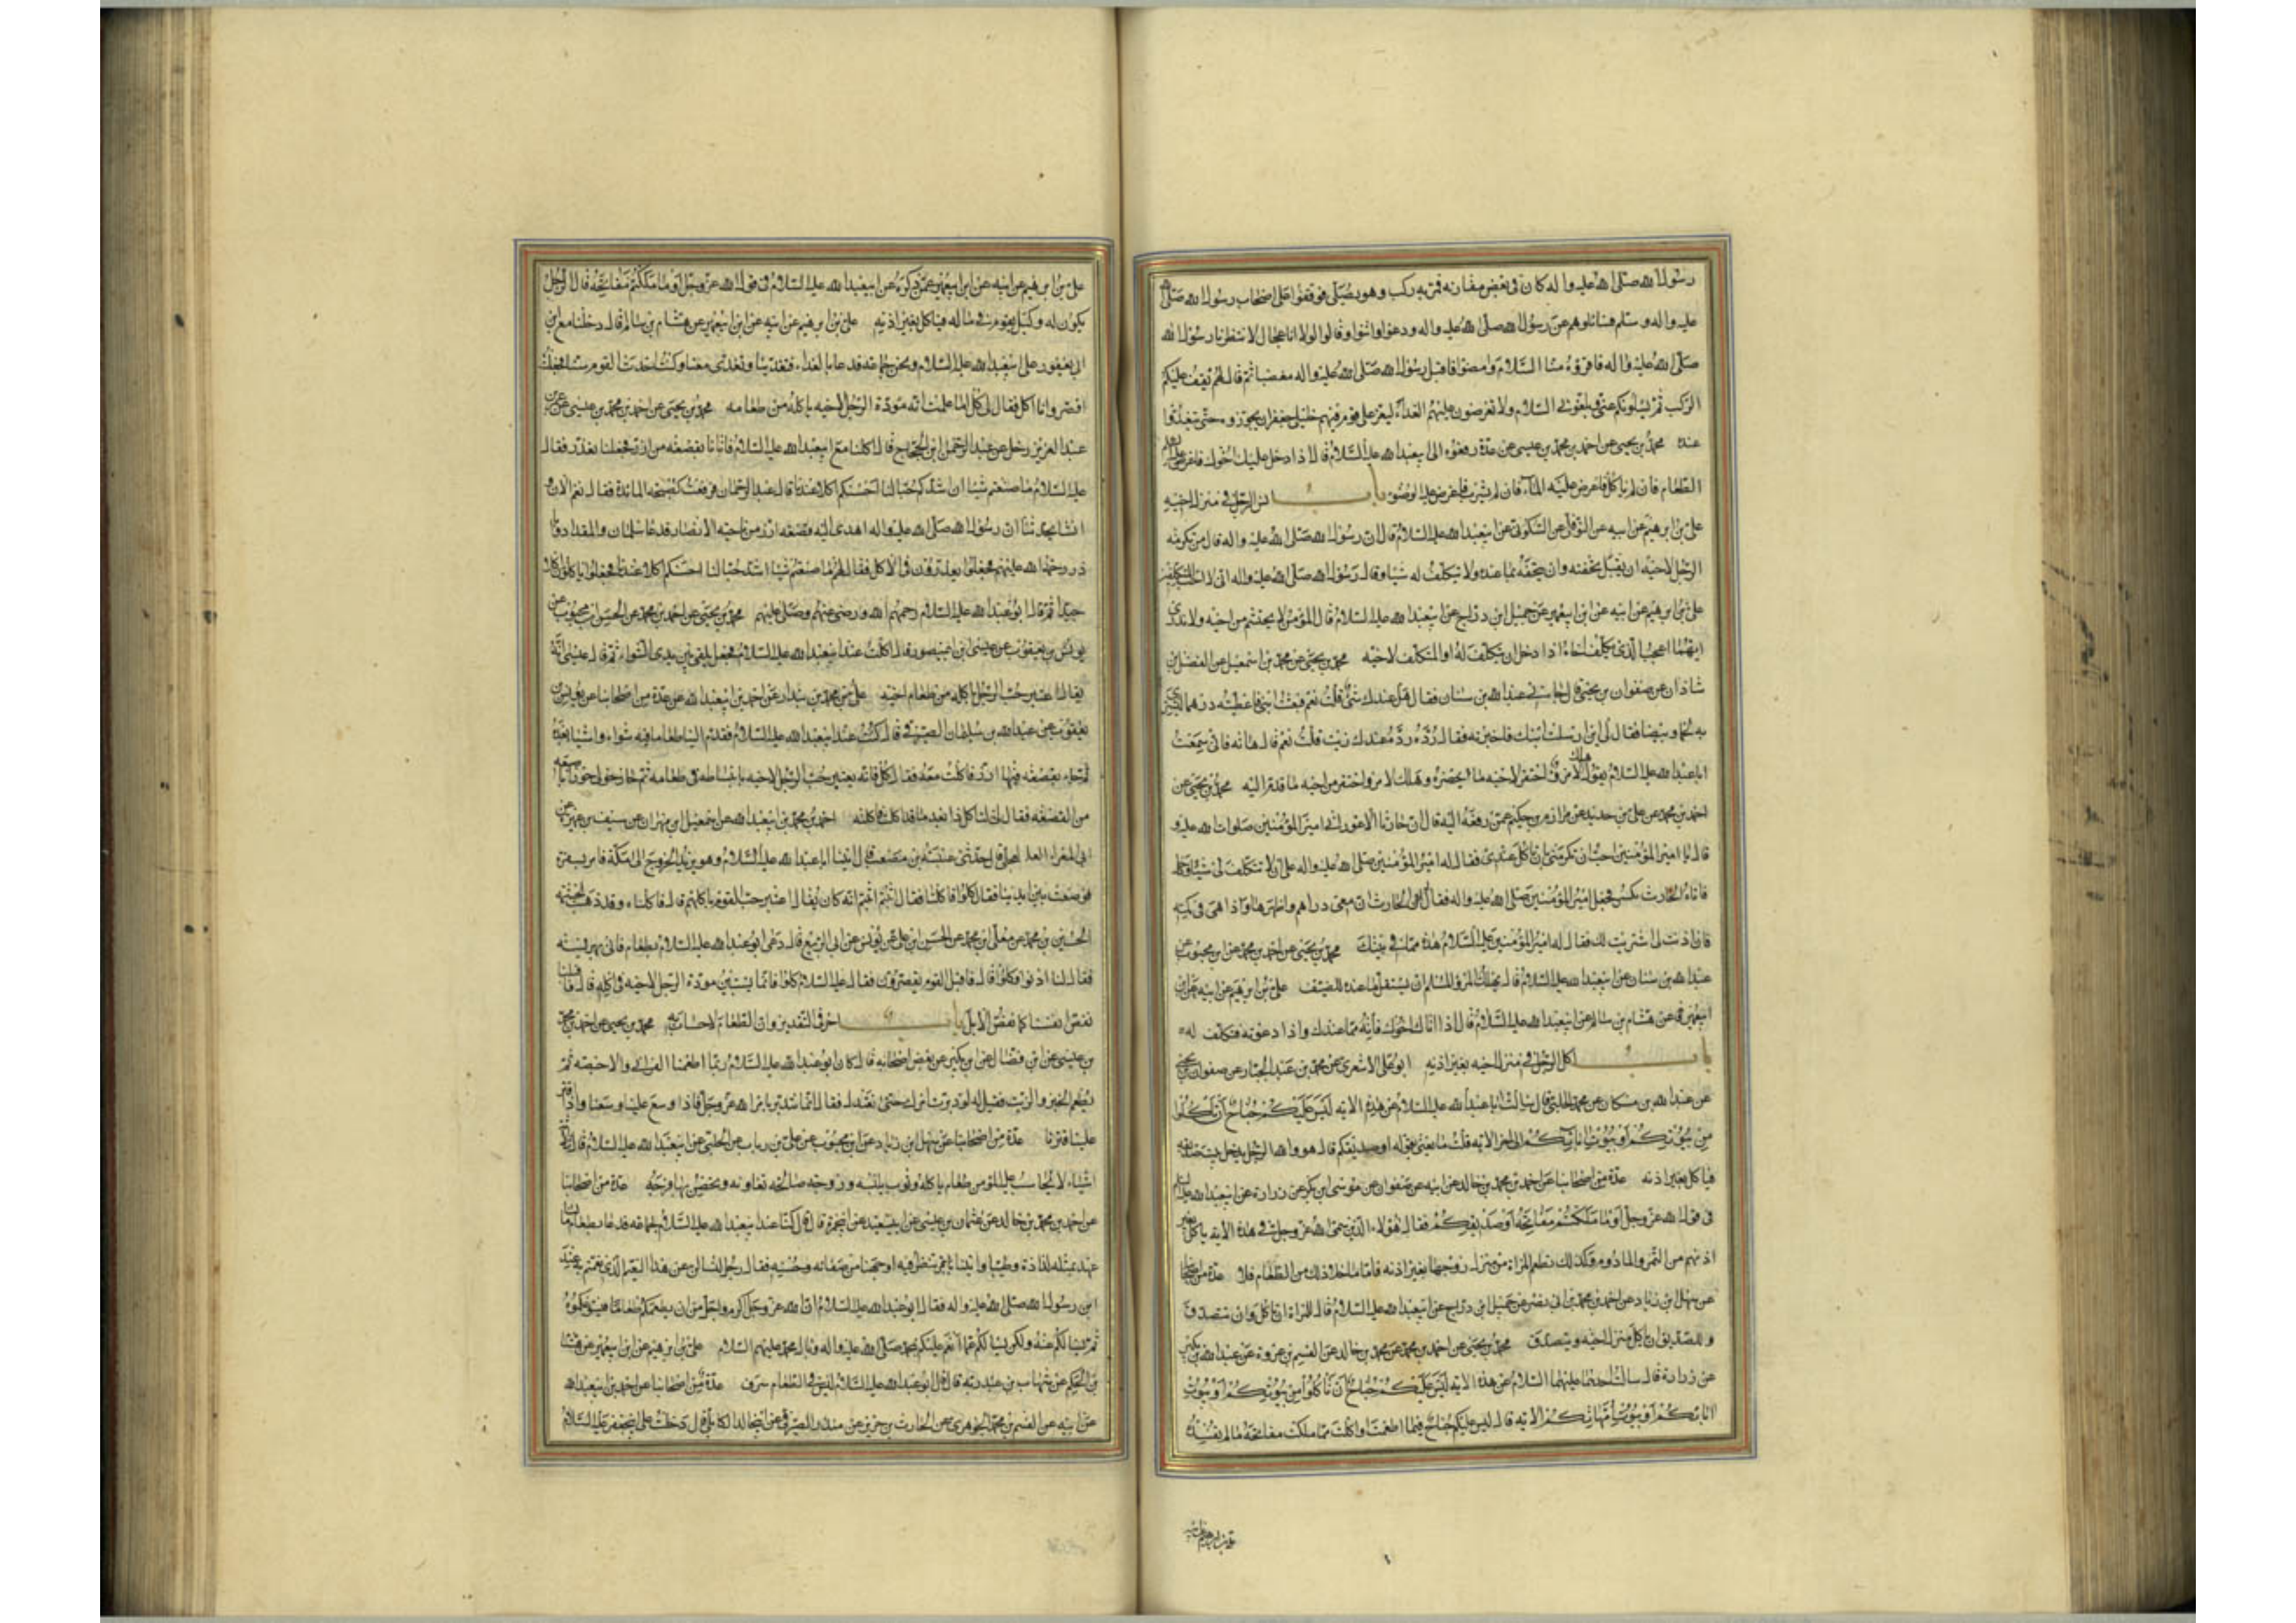 رسول الله صلى الله عليه واله كان فى بعض مغازيه فمر به ركب وهو يصلى فوقفوا على اصحاب رسول الله صلى الله
عليه واله وسلم فسائلوهم عن رسول الله صلى الله عليه واله ودعوا واثنوا وقالوا لولا انا عجال لانتظرنا رسول الله
صلى الله عليه واله فاقرؤه منا السلام ومضوا فاقبل رسول الله صلى الله عليه واله مغضبا ثم قال لهم يقف عليكم
الركب ثم يسئلونكم عنى ويبلغونى السلام ولا تعرضون عليهم الغداء ليعز على قوم فيهم خليلى جعفر ان يجوزوه حتى يتغدوا
عنده محمد بن يحيى عن احمد بن محمد بن عيسى عن عدة رفعوه الى ابيعبد الله عليه السلام قال اذا دخل عليك اخوك فاعرض عليه
الطعام فان لم ياكل فاعرض عليه المآء فان لم يشرب فاعرض عليه الوضوء باب انس الرجل فى منزل اخيه
على بن ابرهيم عن ابيه عن النوفلى عن السكونى عن ابيعبد الله عليه السلام قال ان رسول الله صلى الله عليه واله قال من تكرمة
الرجل لاخيه ان يقبل تحفته وان يتحفه بما عنده ولا يتكلف له شيا وقال رسول الله صلى الله عليه واله انى لا احب المتكلفين
على بن ابرهيم عن ابيه عن ابن ابيعمير عن جميل ابن دراج عن ابيعبد الله عليه السلام قال المؤمن لا يحتشم من اخيه ولا ندرى
ايهما اعجب الذى يكلف اخاه اذا دخل ان يتكلف له او المتكلف لاخيه محمد بن يحيى عن محمد بن اسمعيل عن الفضل بن
شاذان عن صفوان بن يحيى قال جاءنى عبد الله بن سنان فقال هل عندك شئ قلت نعم فبعثت ابنى فاعطيته درهما يشترى
به لحما وبيضا فقال لى اين ارسلت ابنك فاخبرته فقال رده رده عندك زيت قلت نعم قال هاته فانى سمعت
ابا عبد الله عليه السلام يقول هلك لامرئ احتقر لاخيه ما يحضره وهلك لامرئ احتقر من اخيه ما قدم اليه محمد بن يحيى عن
احمد بن محمد عن على بن حديد عن مرازم بن حكيم عمن رفعه اليه قال ان حارثا الاعور اتى امير المؤمنين صلوات الله عليه و
قال يا امير المؤمنين احب ان تكرمنى بان تاكل عندى فقال له امير المؤمنين صلى الله عليه واله على ان لا تتكلف لى شيئا ودخل
فاتاه الحارث بكسر فجعل امير المؤمنين صلى الله عليه واله ياكل فقال له الحارث ان معى دراهم واظهرها واذا هى فى كمه
فان اذنت لى اشتريت لك فقال له امير المؤمنين عليه السلام هذه مما فى بيتك محمد بن يحيى عن احمد بن محمد عن ابن محبوب عن
عبد الله بن سنان عن ابيعبد الله عليه السلام قال يهلك المرؤ المسلم ان يستقل ما عنده للضيف على بن ابرهيم عن ابيه عن ابن
ابيعمير عن هشام بن سالم عن ابيعبد الله عليه السلام قال اذا اتاك اخوك فأته مما عندك واذا دعوته فتكلف له
باب اكل الرجل فى منزل اخيه بغير اذنه ابو على الاشعرى عن محمد بن عبد الجبار عن صفوان بن يحيى
عن عبد الله بن مسكان عن محمد الحلبى قال سالت ابا عبد الله عليه السلام عن هذه الايه ليس عليكم جناح ان تاكلوا
من بيوتكم او بيوت ابائكم الى اخر الايه قلت ما يعنى بقوله او صديقكم قال هو والله الرجل يدخل بيت صديقه
فياكل بغير اذنه عدة من اصحابنا عن احمد بن محمد بن خالد عن ابيه عن صفوان عن موسى ابن بكر عن زرارة عن ابيعبد الله عليه السلام
فى قول الله عز وجل او ما ملكتم مفاتحه او صديقكم فقال هؤلاء الذين سمى الله عز وجل فى هذه الايه ياكل بغير
اذنهم من التمر والمادوم وكذلك تطعم المراة من منزل زوجها بغير اذنه فاما ما خلا ذلك من الطعام فلا عدة من اصحابنا
عن سهل ابن زياد عن احمد بن محمد بن ابى نصر عن جميل ابن دراج عن ابيعبد الله عليه السلام قال للمراة ان تاكل وان تتصدق
وللصديق ان ياكل من منزل اخيه ويتصدق محمد بن يحيى عن احمد بن محمد عن محمد بن خالد عن القسم بن عروة عن عبد الله بن بكير
عن زرارة قال سالت احدهما عليهما السلام عن هذه الايه ليس عليكم جناح ان تاكلوا من بيوتكم او بيوت
ابائكم او بيوت امهاتكم الايه قال ليس عليكم جناح فيما اطعمت او اكلت مما ملكت مفاتحه ما لم تفسده
على بن ابرهيم عن ابيه
على بن ابرهيم عن ابيه عن ابن ابيعمير عمن ذكره عن ابيعبد الله عليه السلام فى قول الله عز وجل او ما ملكتم مفاتحه قال الرجل
يكون له وكيل يقوم فى ماله فياكل بغير اذنه على بن ابرهيم عن ابيه عن ابن ابيعمير عن هشام بن سالم قال دخلنا مع ابن
ابى يعفور على ابيعبد الله عليه السلام ونحن جماعة فدعا بالغداء فتغدينا وتغدى معنا وكنت احدث القوم سنا فجعلت
اقصر وانا اكل فقال لى كل اما علمت انه تعرف مودة الرجل لاخيه باكله من طعامه محمد بن يحيى عن احمد بن محمد بن عيسى عن عمر بن
عبد العزيز عن رجل عن عبد الرحمن ابن الحجاج قال اكلنا مع ابيعبد الله عليه السلام فاتانا بقصعة من ارز فجعلنا نعذر فقال
عليه السلام ما صنعتم شيئا ان اشدكم حبا لنا احسنكم اكلا عندنا قال عبد الرحمان فرفعت كسحة المائدة فقال نعم الان و
انشا يحدثنا ان رسول الله صلى الله عليه واله اهدى اليه قصعة ارز من ناحية الانصار فدعا سلمان والمقداد وابا
ذر رحمة الله عليهم فجعلوا يعذرون فى الاكل فقال لهم ما صنعتم شيئا اشدكم حبا لنا احسنكم اكلا عندنا فجعلوا ياكلون اكلا
جيدا ثم قال ابو عبد الله عليه السلام رحمهم الله ورضى عنهم وصلى عليهم محمد بن يحيى عن احمد بن محمد عن الحسن ابن محبوب عن
يونس بن يعقوب عن عيسى ابن ابى منصور قال اكلت عند ابيعبد الله عليه السلام فجعل يلقى بين يدى الشواء ثم قال يا عيسى انه
يقال اعتبر حب الرجل باكله من طعام اخيه على بن محمد بن بندار عن احمد بن ابيعبد الله عن عدة من اصحابنا عن يونس بن
يعقوب عن عبد الله بن سليمان الصيرفى قال كنت عند ابيعبد الله عليه السلام فقدم الينا طعاما فيه شواء واشياء بعده
ثم جاء بقصعة فيها ارز فاكلت معه فقال كل فانه يعتبر حب الرجل لاخيه بانبساطه فى طعامه ثم حاز حوزا باصبعه
من القصعة فقال لى لتاكلن ذا بعد ما قد اكلت فاكلته احمد بن محمد عن ابيعبد الله عن اسمعيل ابن مهران عن سيف بن عميرة عن
ابى المغراء العجلى قال حدثنى عنبسة بن مصعب قال اتينا ابا عبد الله عليه السلام وهو يريد الخروج الى مكة فامر بسفرة
فوضعت بين ايدينا فقال كلوا فاكلنا فقال اثبتم اثبتم انه كان يقال اعتبر حب القوم باكلهم قال فاكلنا وقد ذهبت الحشمة
الحسين بن محمد عن معلى ابن محمد عن الحسن ابن على عن يونس عن ابى الربيع قال دعى ابو عبد الله عليه السلام بطعام فاتى بهريسة
فقال لنا ادنوا فكلوا قال فاقبل القوم يقصرون فقال عليه السلام كلوا فانما يستبين مودة الرجل لاخيه فى اكله قال فاقبلنا
نغص انفسنا كما تغص الابل باب اخر فى التقدير وان الطعام لا حساب له محمد بن يحيى عن احمد بن محمد
بن عيسى عن ابن فضال عن ابن بكير عن بعض اصحابه قال كان ابو عبد الله عليه السلام ربما اطعمنا الفرانى والاخبصة ثم
يطعم الخبز والزيت فقيل له لو دبرت امرك حتى تعتدل فقال انما نتدبر بامر الله عز وجل فاذا وسع علينا وسعنا واذا قتر
علينا قترنا عدة من اصحابنا عن سهل ابن زياد عن ابن محبوب عن على بن رياب عن الحلبى عن ابيعبد الله عليه السلام قال ثلثة
اشياء لا يحاسب عليهن المؤمن طعام ياكله وثوب يلبسه وزوجة صالحة تعاونه ويحصن بها فرجه عدة من اصحابنا
عن احمد بن محمد بن خالد عن عثمان بن عيسى عن ابيسعيد عن ابيحمزة قال كنا عند ابيعبد الله عليه السلام جماعة فدعا بطعام ما لنا
عهد بمثله لذاذة وطيبا واتينا بتمر تنظر فيه اوجهنا من صفائه وحسنه فقال رجل لتسالن عن هذا النعيم الذى نعمتم به عند
ابن رسول الله صلى الله عليه واله فقال ابو عبد الله عليه السلام ان الله عز وجل اكرم واجل من ان يطعمكم طعاما فيسوغكموه
ثم يسالكم عنه ولكن يسالكم عما انعم عليكم بمحمد صلى الله عليه واله وبال محمد عليهم السلام على بن ابرهيم عن ابن ابيعمير عن هشام
بن الحكم عن شهاب بن عبد ربه قال قال ابو عبد الله عليه السلام ليس فى الطعام سرف عدة من اصحابنا عن احمد بن ابيعبد الله
عن ابيه عن القسم بن محمد الجوهرى عن الحارث بن حريز عن سدير الصيرفى عن ابيخالد الكابلى قال دخلت على ابيجعفر عليه السلام